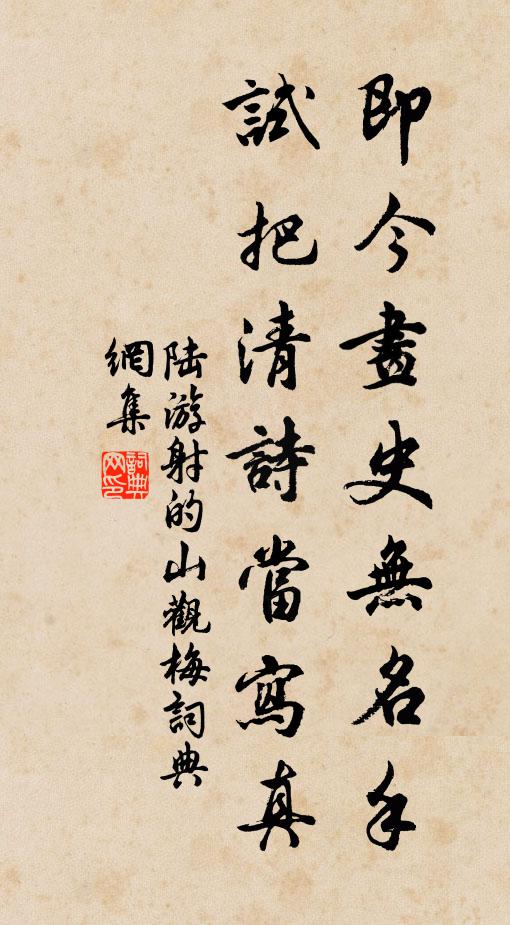 即今畫史無名手
試把清詩當寫真
陸游射的山觀梅詞典
網集
詞典
网印